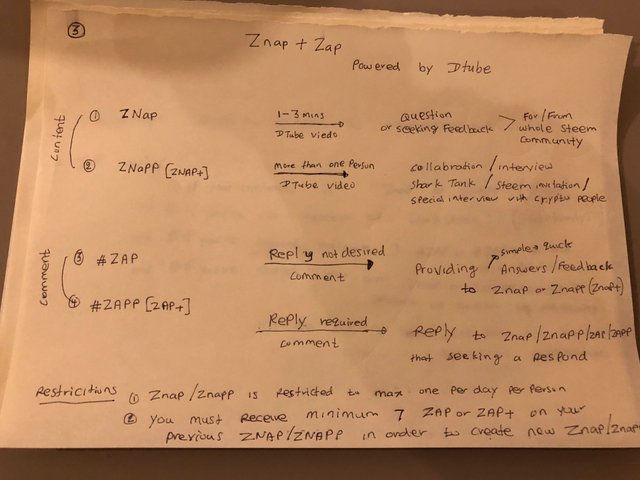 ③
Znap + Zap
Powered by Dtube
Content
① ZNap
1-3 mins
DTube viedo
Question
or seeking Feedback
For/From
whole Steem
Community
② ZNaPP [ZNAP+]
more than one Person
DTube video
collabration / interview
Shark Tank / Steem invitation /
special interview with crypto people
Comment
③ #ZAP
Reply not desired
comment
simple → quick
Providing Answers/Feedback
to Znap or Znapp (Znap+)
④ #ZAPP [ZAP+]
Reply required
comment
Reply to Znap/Znapp/ZAP/ZAPP
that seeking a Respond
Restricitions ① Znap/Znapp is Restricted to max one per day per Person
② you must Receive minimum 7 ZAP or ZAP+ on your
previous ZNAP/ZNAPP in order to create new Znap/Znapp